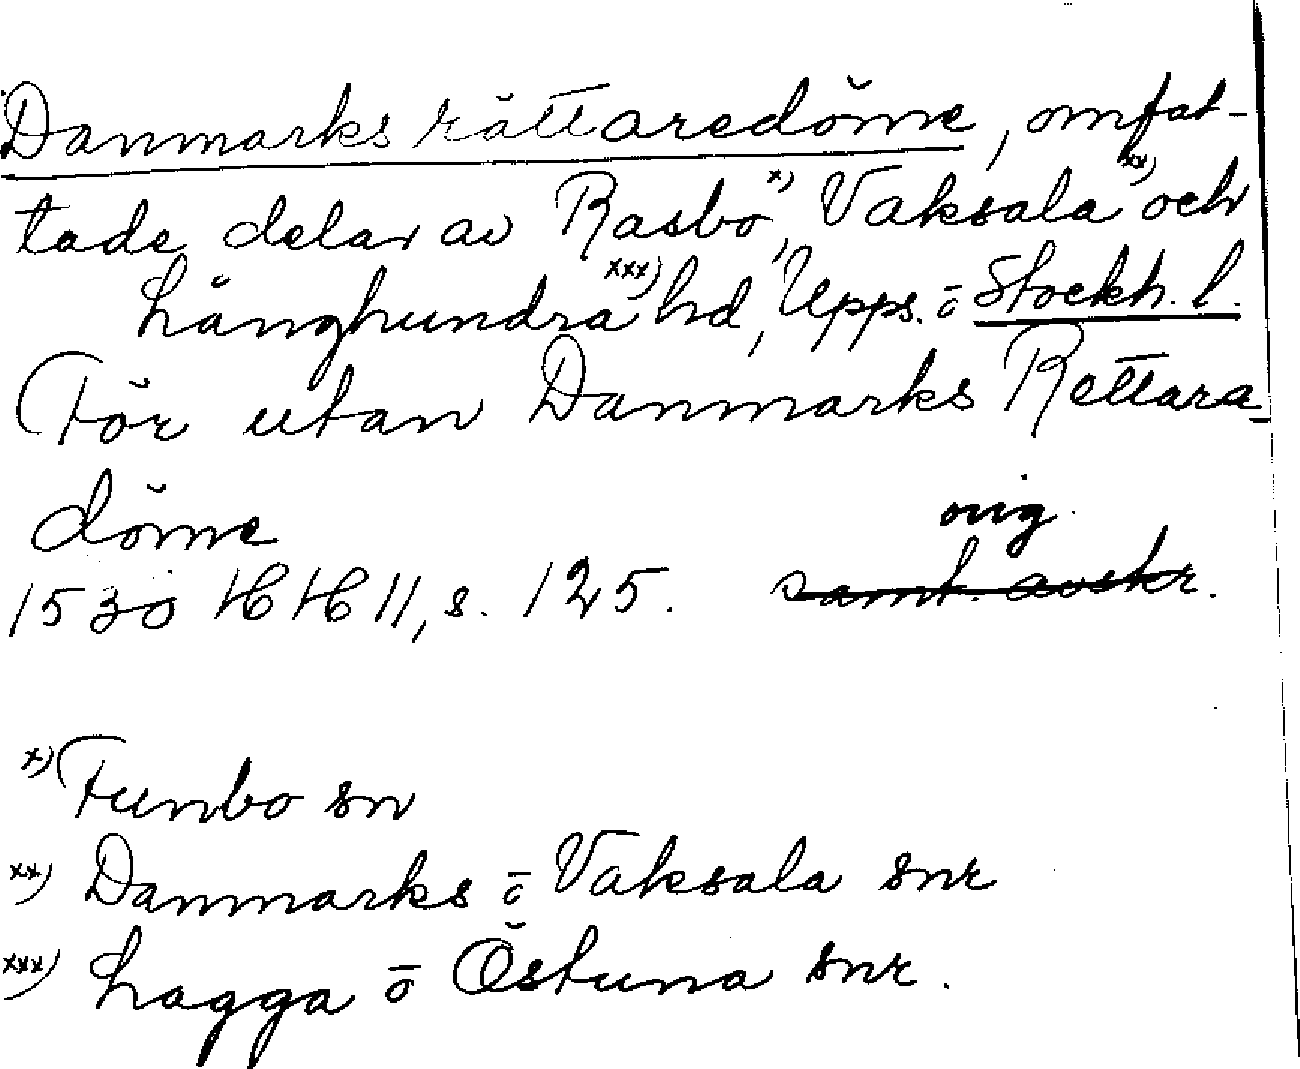 Danmarks rättaredöme, omfat-
tade delar av Rasbo x), Vaksala xx) och
Långhundra xxx) hd, Upps. o Stockh. l.
För utan Danmarks Rettara
döme
orig.
1530 HH 11, s. 125. samt. avskr.
x) Funbo sn
xx) Danmarks o Vaksala snr
xxx) Lagga o Östuna snr.